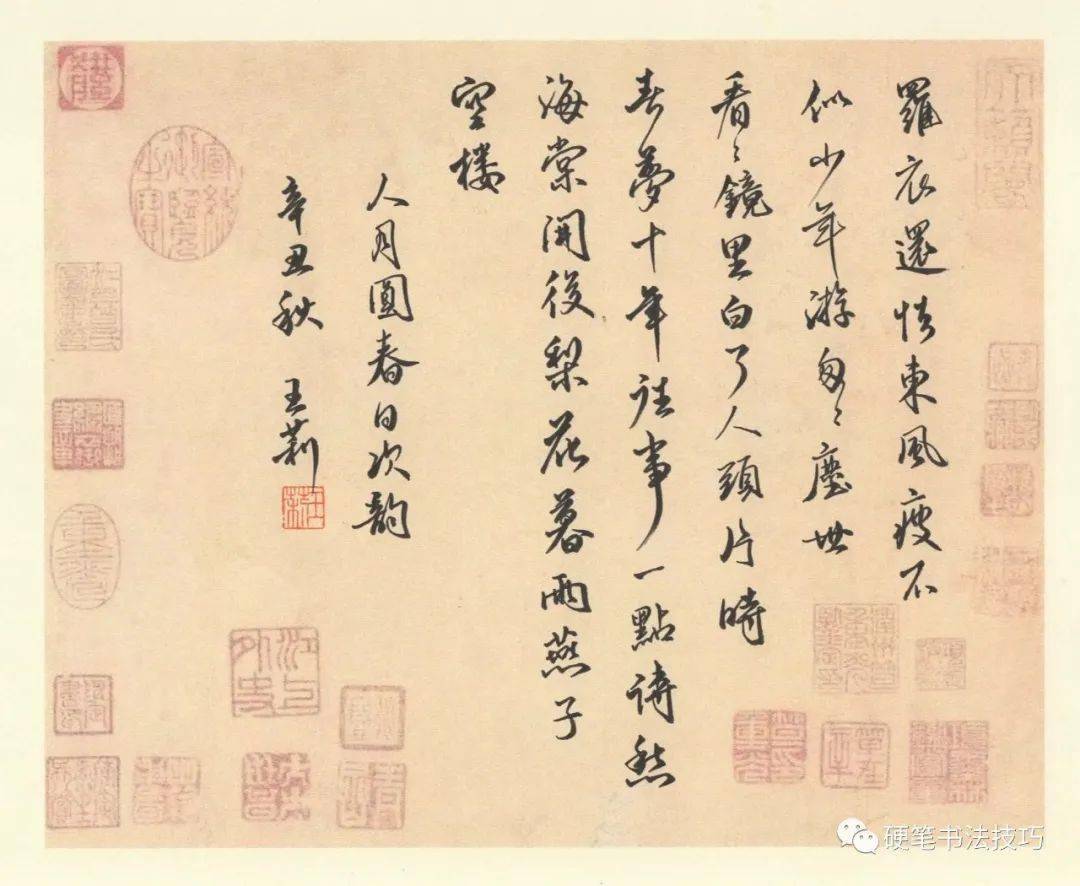 羅衣還怯東風瘦不
似少年游匆〻塵世
看〻鏡里白了人頭片時
春夢十年往事一點詩愁
海棠開後梨花暮雨燕子
空楼
人月圓春日次韵
辛丑秋 王莉
江上外史
硬笔书法技巧